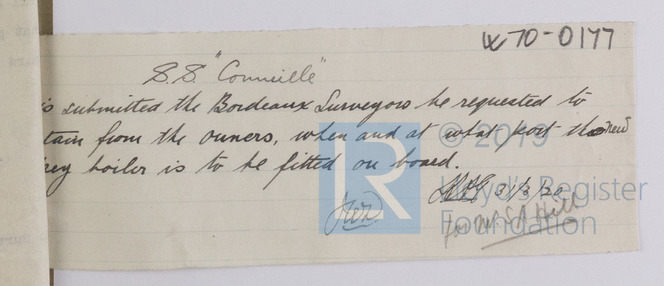 W70-0177
S.S. "Corneille"
is submitted the Bordeaux Surveyors be requested to
tain from the owners, when and at what port the new
key boiler is to be fitted on board.
31/3/20
for Mr. S. A. Hill
© 2019
Lloyd's Register
Foundation
LR